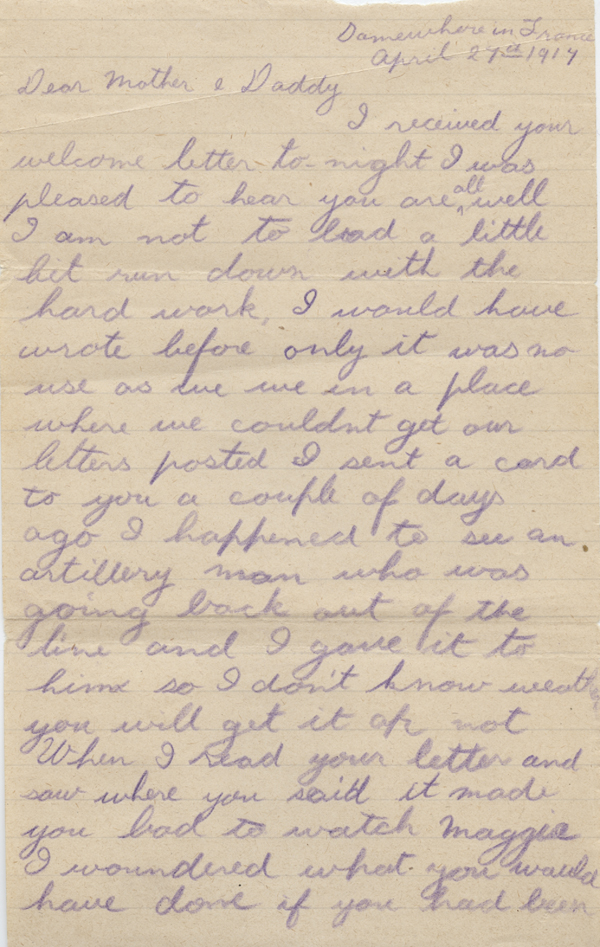 Somewhere in France
April 27th 1917
Dear Mother & Daddy
I received your
welcome letter to-night I was
pleased to hear you are all well
I am not to bad a little
bit run down with the
hard work, I would have
wrote before only it was no
use as we we in a place
where we couldnt get our
letters posted I sent a card
to you a couple of days
ago I happened to see an
artillery man who was
going back out of the
line and I gave it to
him so I don't know
you will get it or not
When I read your letter and
saw where you said it made
you bad to watch Maggie
I woundered what you would
have done if you had been